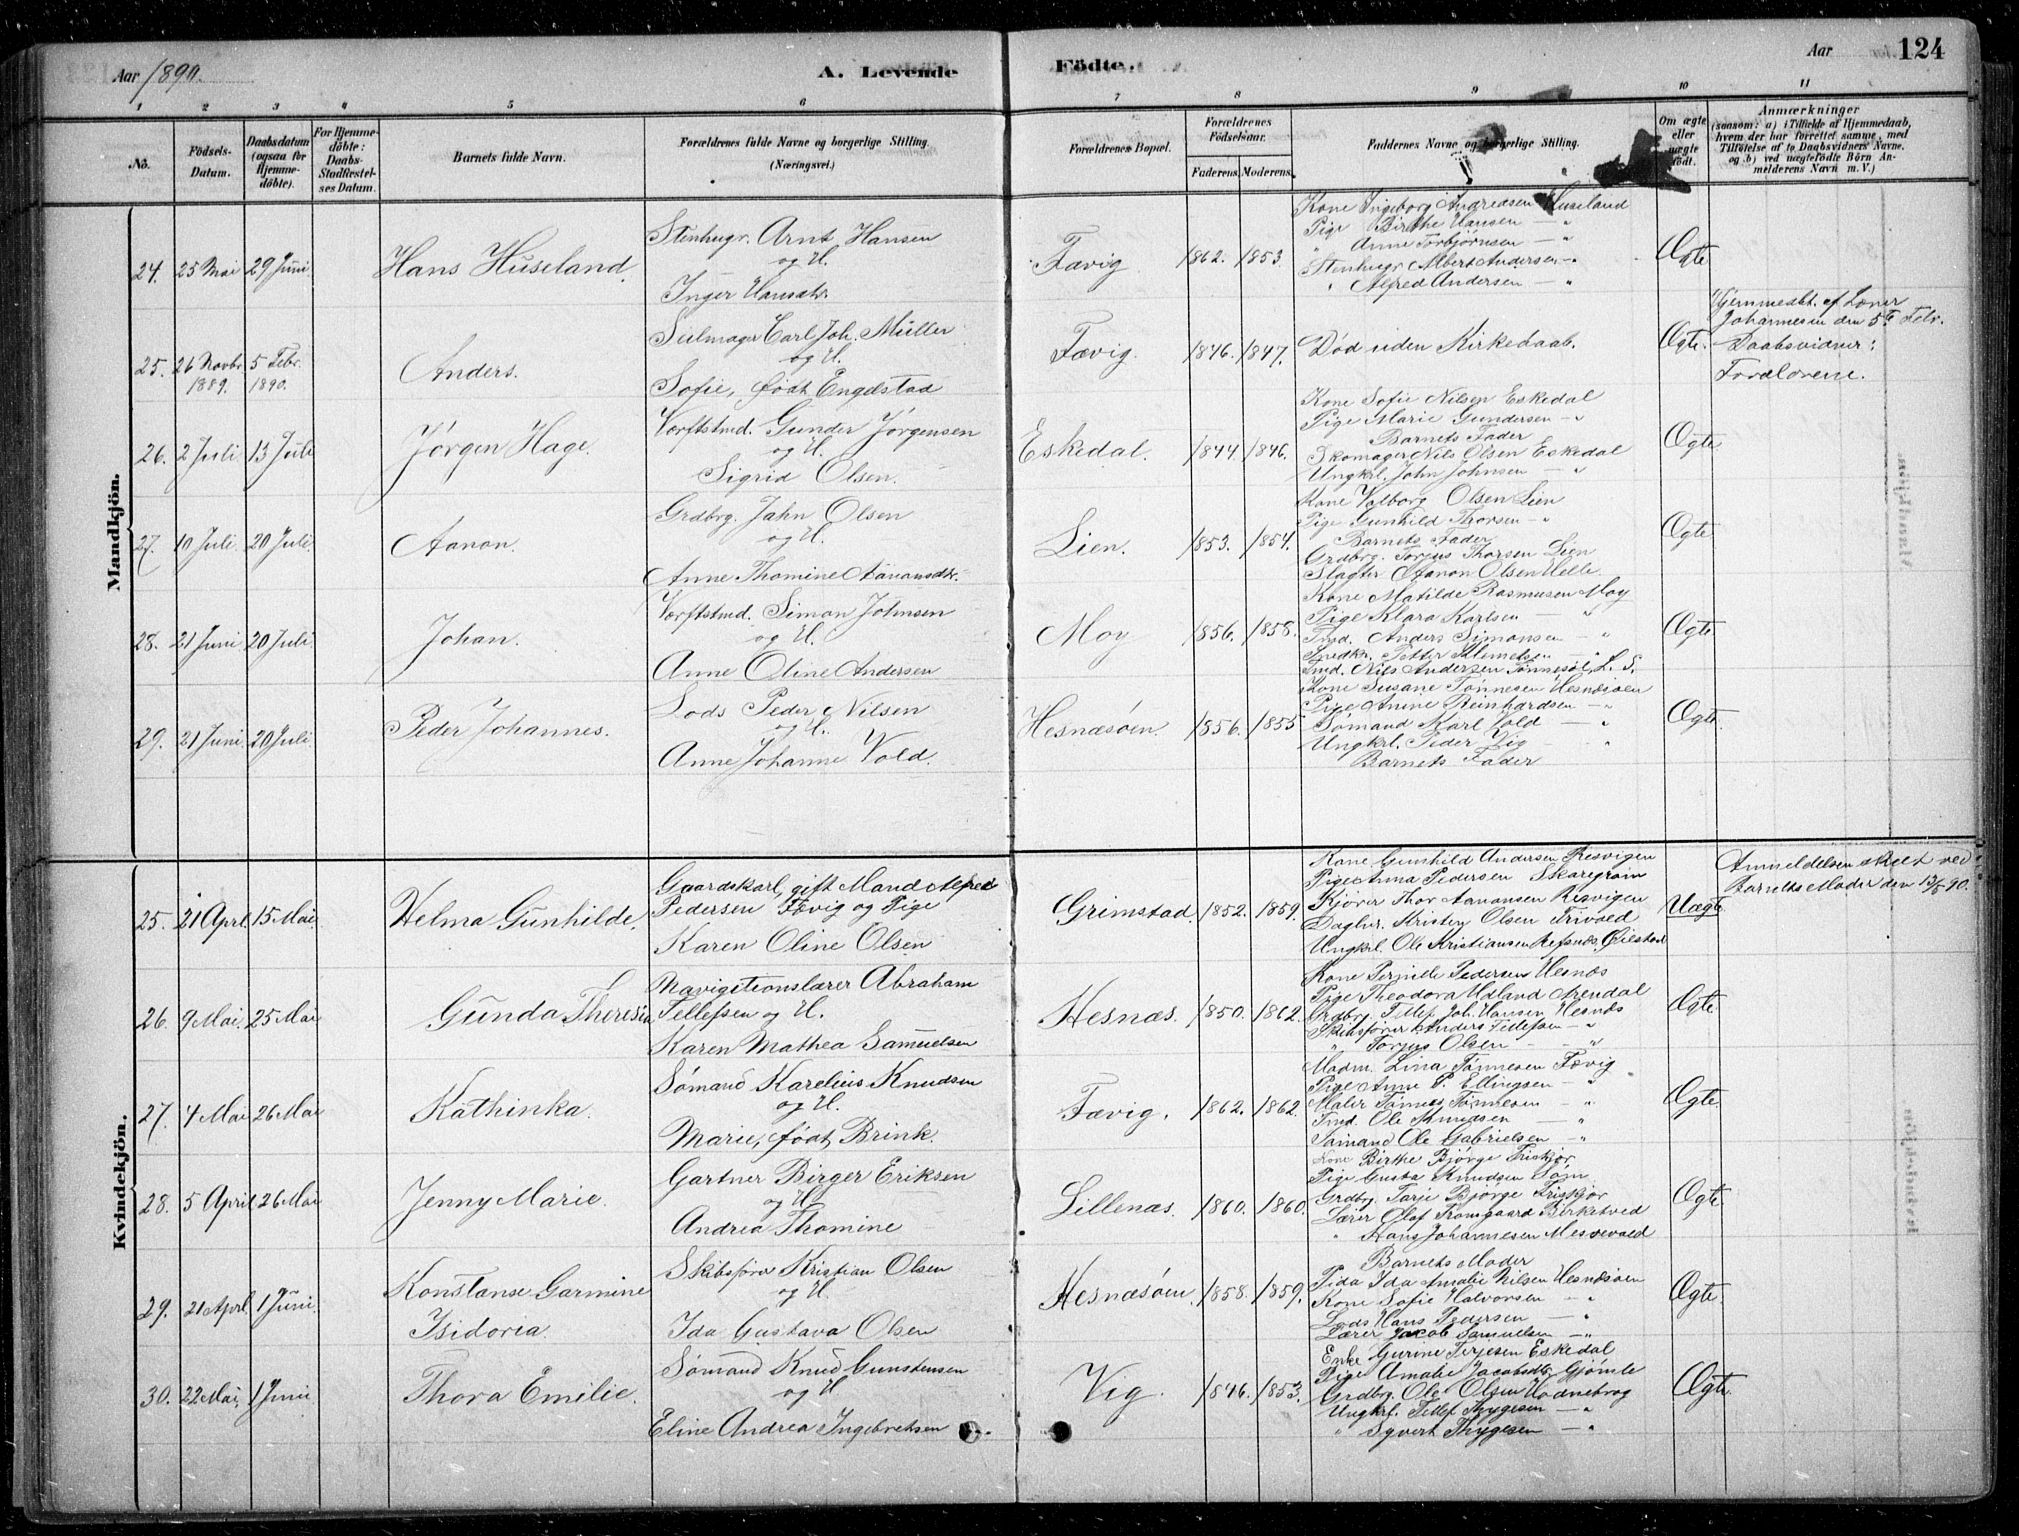 Aar 1890.
A. Levende Födte.
Aar 124
1 2 3 4 5 6 7 8 9 10 11
No.
Födsels-Datum.
Daabsdatum (ogsaa for Hjemme-döbte).
For Hjemme-döbte: Daabs-Stadfæstel-ses Datum.
Barnets fulde Navn.
Forældrenes fulde Navne og borgerlige Stilling. (Næringsvei.)
Forældrenes Bopæl.
Forældrenes Födselsaar.
Faderens. Moderens.
Faddernes Navne og borgerlige Stilling.
Om ægte eller uægte födt.
Anmærkninger (saasom: a) i Tilfælde af Hjemmedaab, hvem der har forrettet samme, med Tilföielse af to Daabsvidners Navne, og b) ved uægtefödte Börn An-melderens Navn m. V.)
Mandkjön.
24. 25 Mai 29 Juni Hans Huseland.
Stenhugr. Arnt Hansen
og H.
Inger Hansdtr.
Fævig 1862. 1853.
Kone Ingeborg Andreasen Huseland
Pige Birthe Hansen — "
" Anne Torbjørnsen — "
Stenhugr. Albert Andersen - "
" Alfred Andersen — "
Ægte
25. 26 Novbr. 1889. 5 Febr. 1890. Anders.
Seilmager Carl Joh. Müller
og H.
Sofie, født Engelstad
Fævig. 1846. 1847.
Død uden Kirkedaab.
Ægte.
Hjemmedbt. af Lærer
Johannesen den 5te Febr.
Daabsvidner:
Forældrene.
26. 2 Juli 13 Juli Jørgen Hage.
Værftstmd. Gunder Jörgensen
og H.
Sigrid Olsen.
Eskedal. 1844. 1846.
Kone Sofie Nilsen Eskedal
Pige Marie Gundersen - "
Barnets Fader
Skomager Nils Olsen Eskedal
Ungkrl. John Johnsen — "
Ægte
27. 10 Juli. 20 Juli. Aanon.
Grdbrg. Jahn Olsen
og H.
Anne Thomine Aanonsdtr.
Lien. 1853. 1854.
Kone Valborg Olsen Lien
Pige Gunhild Thorsen - "
Barnets Fader
Grdbrg. Torjus Thorsen Lien
Slagter Aanon Olsen Helle
Ægte
28. 21 Juni 20 Juli Johan.
Værftstmd. Simon Johnsen
og H.
Anne Oline Andersen
Moy 1856. 1858.
Kone Matilde Rasmusen Moy
Pige Klara Karlsen "
Tmd. Anders Simonsen — "
Snedkr. Petter Klemetsen — "
Tmd. Nils Andersen Tønnesøl, L. S.
Ægte
29. 21 Juni 20 Juli Peder Johannes.
Lods Peder Nilsen
og H.
Anne Johanne Vold.
Hesnæsøen. 1856. 1855
Kone Susane Tønnesen Hesnæsøen
Pige Anine Reinhardsen — "
Sømand Karl Vold — "
Ungkrl. Peder Vig — "
Barnets Fader
Ægte
Kvindekjön.
25. 21 Apr. 15 Mai. Helma Gunhilde.
Gaardskarl, gift Mand Alfred
Pedersen Fævig og Pige
Karen Oline Olsen
Grimstad 1852. 1859.
Kone Gunhild Andersen Resvigen
Pige Anna Pedersen Skaregrøm
Kjører Thor Aanonsen Resvigen
Daglnr. Kristen Olsen Trivold
Ungkrl. Ole Kristiansen Refsnes,
Uægte
Anmeldelsen skeet ved
Barnets Moder den 13/5 90.
26. 9 Mai. 25 Mai Gunda Theresia
Navigationslærer Abraham
Tellefsen og H.
Karen Mathea Samuelsen
Hesnæs. 1850. 1862.
Kone Pernille Pedersen Hesnæs
Pige Theodora Udland Arendal
Grdbrg. Tellef Joh. Hansen Hesnæs
Skibsfører Anders Tellefsen — "
" Torjus Olsen — "
Ægte
27. 4 Mai 26 Mai Kathinka.
Sømand Karelius Knudsen
og H.
Marie, født Brink.
Fævig. 1862. 1862.
Madm. Lina Tønnesen Fævig
Pige Anne P. Ellingsen — "
Maler Tønnes Tønnesen — "
Tmd. Ole Knudsen — "
Sømand Ole Gabrielsen — "
Ægte.
28. 5 April 26 Mai Jenny Marie.
Gartner Birger Eriksen
og H.
Andrea Thomine
Lillenæs. 1860. 1860.
Kone Birthe Bjørge Friskjør
Pige Gusta Knudsen Søm
Grdbrg. Tarje Bjørge Friskjør
Lærer Olaf Tromgaard Birketved
" Hans Johannesen Mesvevold
Ægte
29. 21 Apr. 1 Juni. Konstanse Garmine
Isidoria.
Skibsfører Kristian Olsen
og H.
Ida Gustava Olsen
Hesnæsøen. 1858. 1859.
Barnets Moder
Pige Ida Amalie Nilsen Hesnæsøen
Kone Sofie Halvorsen — "
Lods Hans Pedersen — "
Lærer Jakob Samuelsen — "
Ægte.
30. 22 Mai, 1 Juni Thora Emilie.
Sømand Knud Gunstensen
og H
Eline Andrea Ingebretsen
Vig. 1846. 1853.
Enke Gurine Terjesen Eskedal
Pige Amalie Jacobsdtr. Gjømle
Grdbrg. Ole Olsen Hodnebrog
Ungkrl. Tellef Thygesen — "
" Syvert Thygesen — "
Ægte